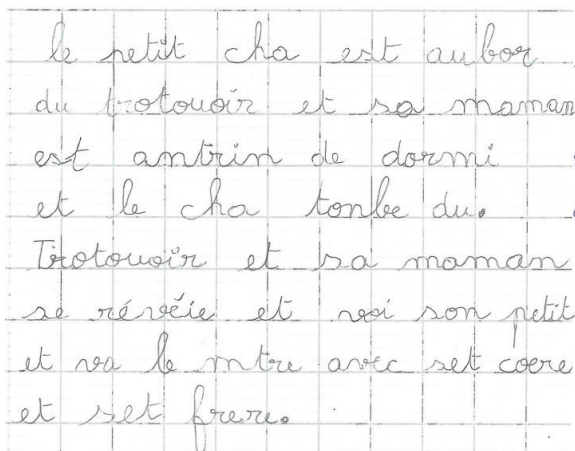 le petit cha est au bor
du trotouoir et sa maman
est antrin de dormi
et le cha tonbe du.
Trotouoir et sa maman
se révèie et voi son petit
et va le mtre avec set coere
et set frere.